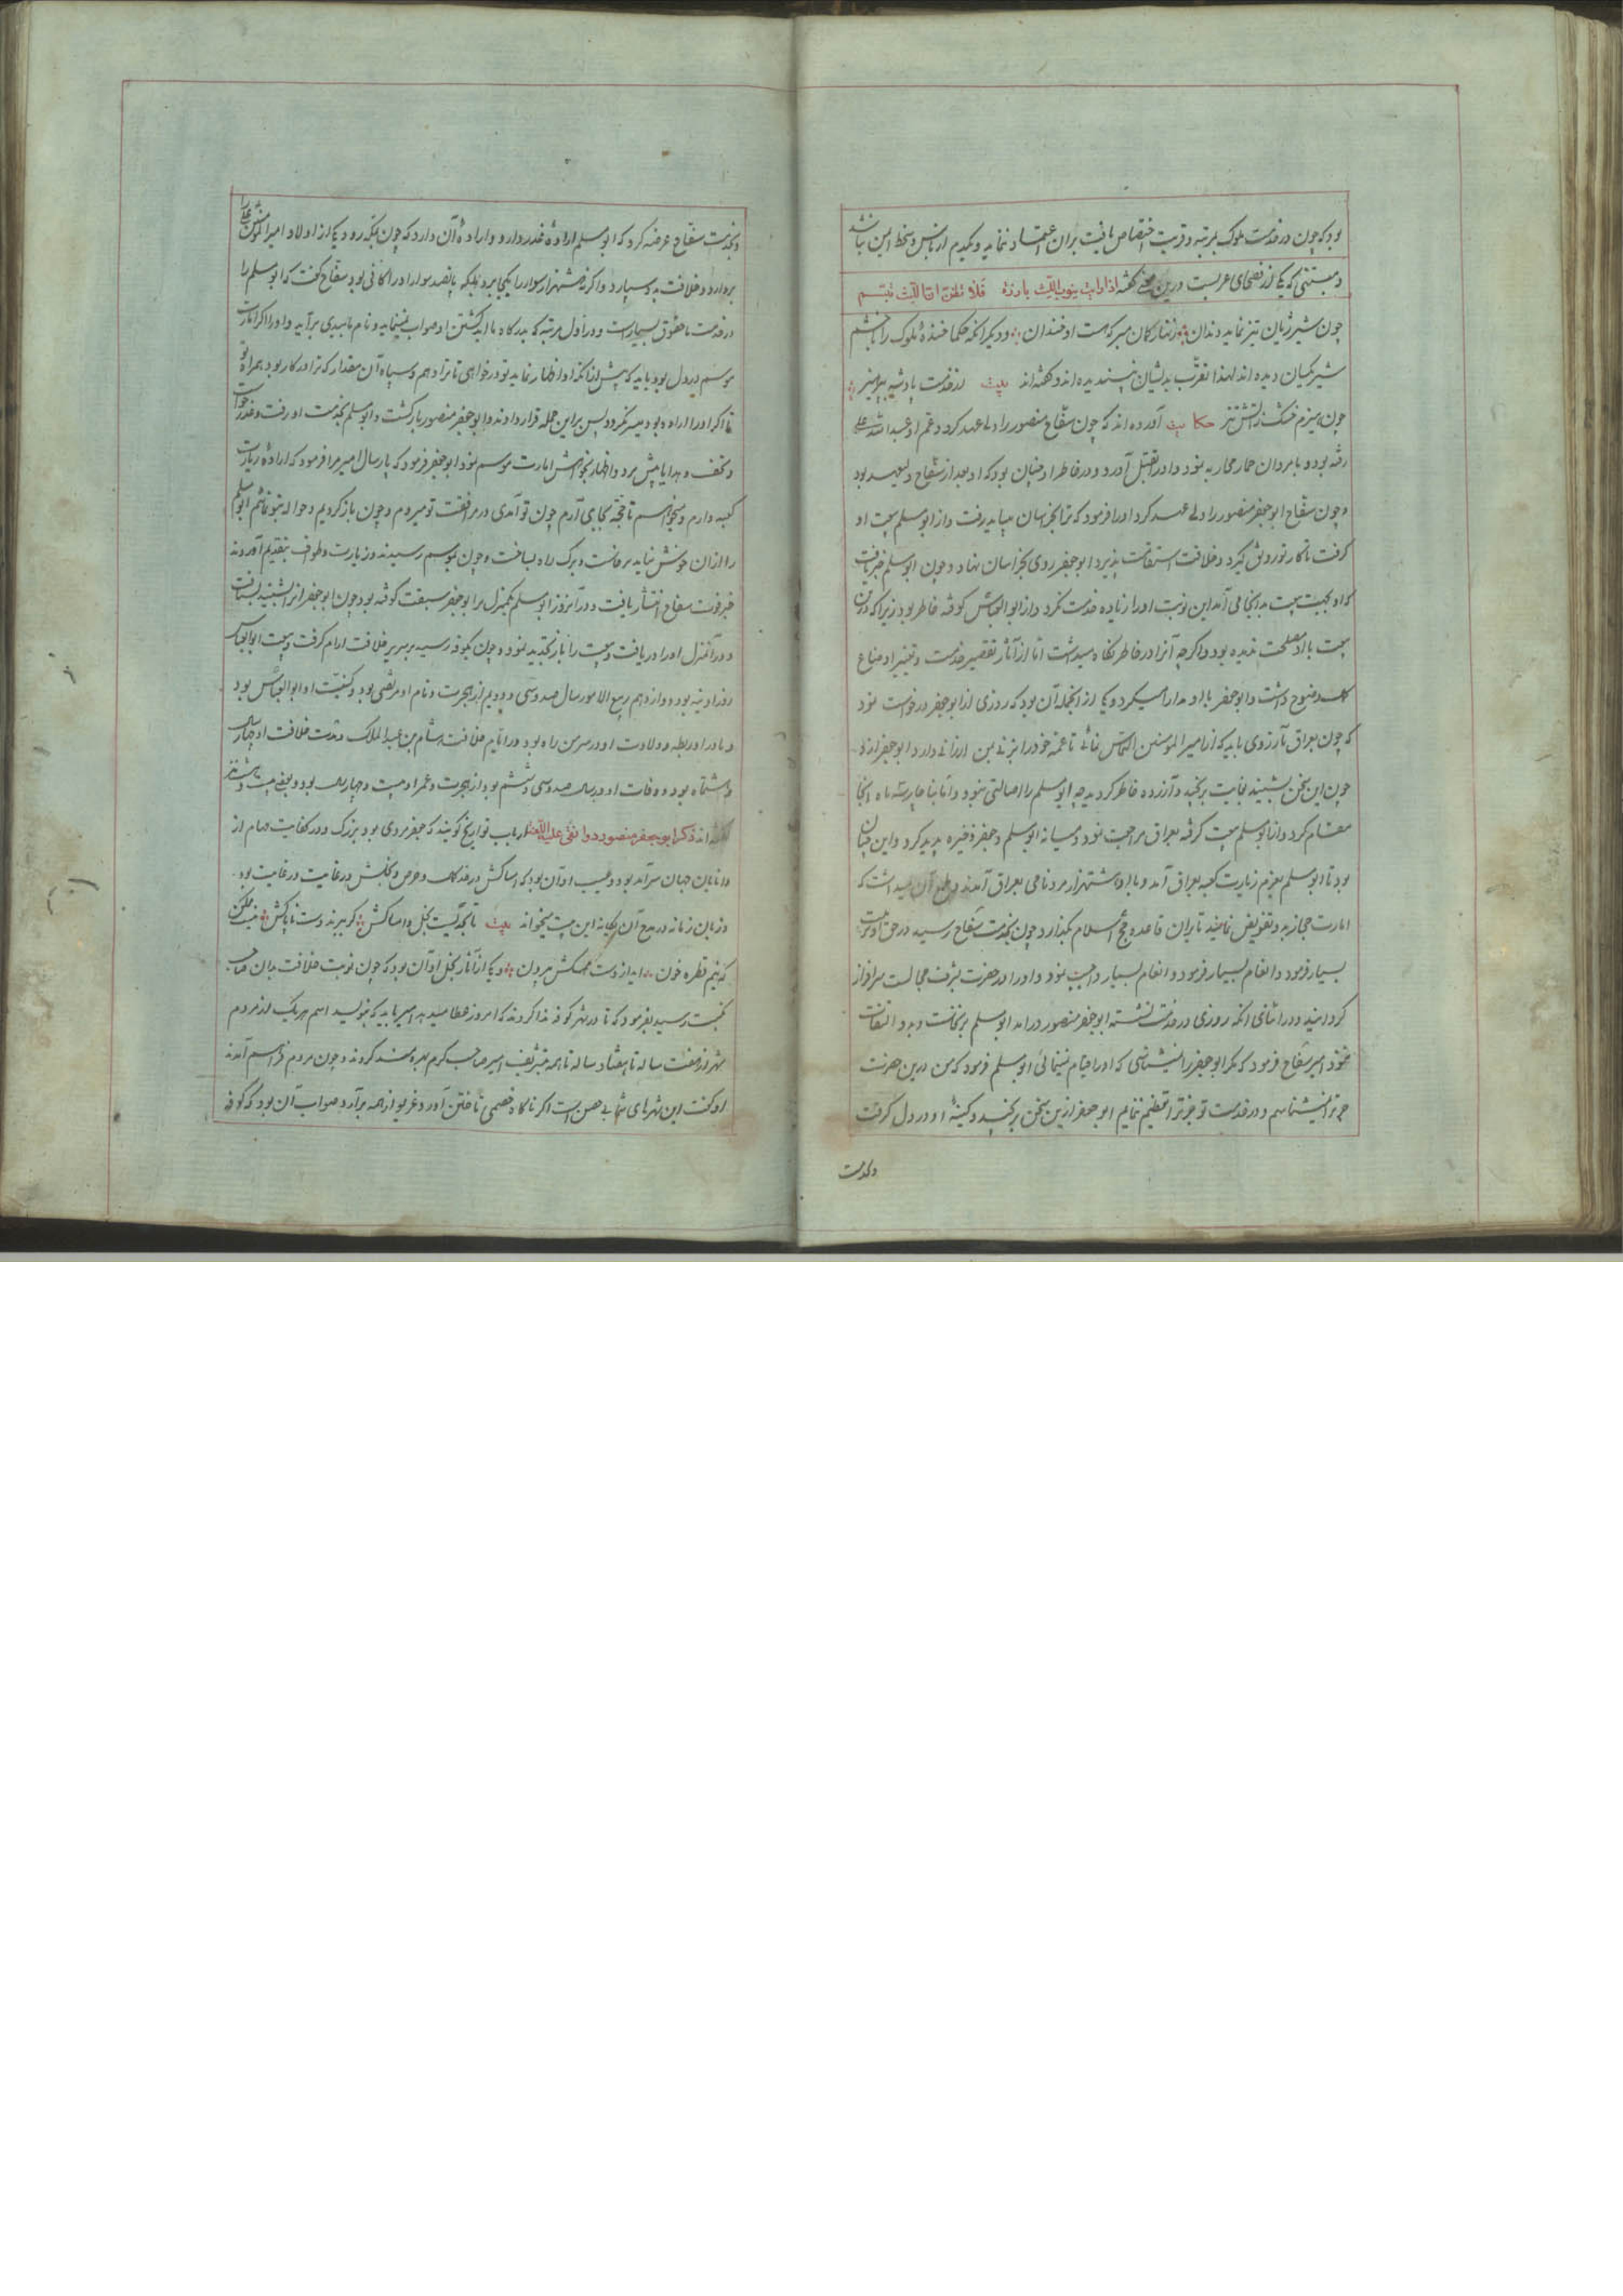 بود که چون در خدمت ملوک بمرتبه و قربت اختصاص یافت بران اعتماد ننماید و یکدم از بأس و سخط ایمن نباشد
و متنبی که یکی از فصحای عربست درین معنی گفته اذا رایت نیوب اللیث بارزة فلا تظنن ان اللیث مبتسم
چون شیر ژیان تیز نماید دندان زنهار گمان مبر که هست او خندان و دیگر آنکه حکما خندۀ ملوک را خشم
شیر یکسان دیده اند لهذا تقرب بدیشان نپسندیده اند و گفته اند بیت از خدمت پادشه بپرهیز
چون هیزم خشک ز آتش تیز حکایت آورده اند که چون سفاح منصور را ولی عهد کرد و عم او عبد الله علی
رفته بود و با مردان حمار محاربه نمود و او را بقتل آورد و در خاطر او چنان بود که او بعد از سفاح ولیعهد بود
و چون سفاح ابو جعفر منصور را ولی عهد کرد او را فرمود که ترا بخراسان میباید رفت و از ابو مسلم بیعت او
گرفت تا کار تو رونق گیرد و خلافت استقامت پذیرد ابو جعفر روی بخراسان نهاد و چون ابو مسلم خبر یافت
که او بجهت بیعت بدانجا می آمد این نوبت او را زیاده خدمت نکرد و از ابو العباس کوفته خاطر بود زیرا که درین
بیعت با او مصلحت ندیده بود و اگرچه آنرا در خاطر نگاه میداشت اما از آثار تقصیر خدمت و تغییر اوضاع
وضوح داشت و ابو جعفر با او مدارا میکرد و یکی از آنجمله آن بود که روزی از ابو جعفر درخواست نمود
که چون بعراق باز روی باید که از امیر المومنین التماس نمائی تا عمه خود را بزنی بمن ارزانی دارد ابو جعفر از وی
چون این سخن بشنید بغایت برنجید و آزرده خاطر گردید چه ابو مسلم را اصالتی نبود و اما بناچار سه ماه آنجا
مقام کرد و از ابو مسلم بیعت گرفته بعراق مراجعت نمود و میانه ابو مسلم و جعفر ذخیره پدید کرد و این چنان
بود تا ابو مسلم بعزم زیارت کعبه بعراق آمد و با او هشتهزار مرد نامی بعراق آمدند و طمع آن میداشت که
امارت حجاز بدو تفویض نمایند تا بران قاعده حج اسلام بگذارد چون بخدمت سفاح رسید در حق او تربیت
بسیار فرمود و انعام بسیار فرمود و انعام بسیار واجب نمود و او را در حضرت بشرف مجالست سرافراز
گردانید و در اثنای آنکه روزی در خدمت نشسته ابو جعفر منصور در آمد ابو مسلم برنخاست و بدو التفات
ننمود امیر سفاح فرمود که مگر ابو جعفر را نمیشناسی که او را قیام نمینمائی ابو مسلم فرمود که من درین حضرت
جز ترا نمیشناسم و در خدمت تو جز ترا تعظیم ننمایم ابو جعفر ازین سخن برنجید و کینۀ او در دل گرفت
و بخدمت
و بخدمت سفاح عرضه کرد که ابو مسلم ارادۀ غدر دارد و ارادۀ آن دارد که چون بمکه رود یکی از اولاد امیر المومنین علی را
بردارد و خلافت بدو سپارد و اگر نه هشتهزار سوار را بکجا برد بمکه پانصد سوار او را کافی بود سفاح گفت که ابو مسلم را
در خدمت ما حقوق بسیارست و در اول مرتبه که بدرگاه ما آید کشتن او صواب نمینماید و نام ما ببدی برآید و او را اگر امارت
موسم در دل بود باید که پیش از آنکه او اظهار نماید تو درخواهی تا ترا دهم و سپاه آن مقدار که ترا در کار بود همراه تو
تا اگر او را اراده بود میسر نگردد پس بر این جمله قرار دادند و ابو جعفر منصور باز گشت و ابو مسلم بخدمت او رفت و عذر خواست
و تحف و هدایا پیش برد و اظهار بخواهش امارت موسم نمود ابو جعفر فرمود که پارسال امیر مرا فرمود که ارادۀ زیارت
کعبه دارم و میخواهم تا حجه بجای آرم چون تو آمدی در مرافقت تو میروم و چون باز گردیم و حواله بتو نمائم ابو مسلم
را ازان خوش نیامد برخاست و برگ راه بساخت و چون بموسم رسیدند و زیارت و طوف بتقدیم آوردند
خبر فوت سفاح انتشار یافت و در آنروز ابو مسلم یکمنزل بر ابو جعفر سبقت گرفته بود چون ابو جعفر آنرا شنید بشتافت
و در آنمنزل او را دریافت و بیعت را باز تجدید نمود و چون بکوفه رسید بر سریر خلافت ارام گرفت و بیعت ابو العباس
روز اوینه بود دوازدهم ربیع الاخر سال صد و سی و دویم از هجرت و نام او مرتضی بود و کنیت او ابو العباس بود
و مادر او ریطه و ولادت او در سر من راه بود در ایام خلافت هشام بن عبد الملک و مدت خلافت او چهار سال
و هشتماه بود و وفات او در سال صد و سی و ششم بود از هجرت و عمر او بیست و چهار سال بود و بعضی بیست و هشت نیز
گفته اند ذکر ابو جعفر منصور دوانقی علیه اللعنه ارباب تواریخ گویند که جعفر مردی بود بزرگ و در کفایت مهام از
دانایان جهان سرآمد بود و عیب او آن بود که امساکش در حد کمال و حرص و بخلش در غایت درغایت بود
و زبان زمانه در مدح آن یگانه این بیت میخواند بیت تا بحدیست بخل و امساکش گر ببرند دست ناپاکش نیست ممکن
که نیم قطره خون اید از دست ممسکش بیرون و یکی از آثار بخل او آن بود که چون نوبت خلافت بدان صاحب
نکبت رسید بفرمود که تا در شهر کوفه ندا کردند که امروز عطا میدهد امیر باید که بنویسید اسم هر یک از مردم
شهر از هفت ساله تا هفتاد ساله تا همه بتشریف امیر صاحب کرم بهره مند گردند و چون مردم فراهم آمدند
او گفت این شهر های شما بی حصن است اگر ناگاه خصمی تاختن آورد غریو از همه برآرد صواب آن بود که کوفه